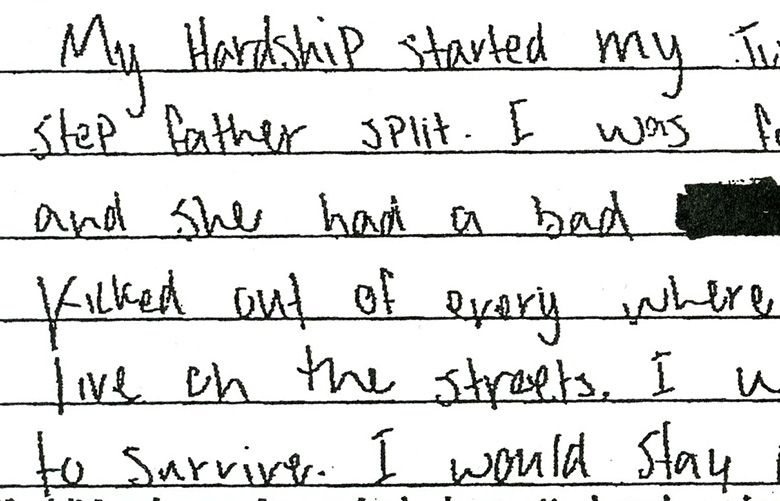 My Hardship started my
step father split. I was
and she had a bad
Kicked out of every where
live on the streets. I
to survive. I would stay